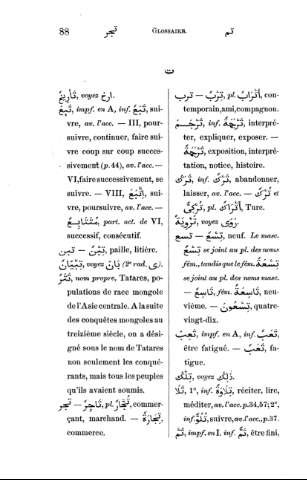 88 تجر GLOSSAIRE. تم
ت
تَأْرِيخٌ, voyez ارخ.
تَبِعَ, impf. en A, inf. تَبَعٌ, sui-
vre, av. l'acc. — III, pour-
suivre, continuer, faire sui-
vre coup sur coup succes-
sivement (p. 44), av. l'acc. —
VI, faire successivement, se
suivre. — VIII, اِتَّبَعَ, sui-
vre, poursuivre, av. l'acc. —
مُتَتَابِعٌ part. act. de VI,
successif, consécutif.
تبن — تِبْنٌ, paille, litière.
تِبْيَانٌ, voyez بان (2ᵉ rad. ى).
تَتَرٌ, nom propre, Tatares, po-
pulations de race mongole
de l'Asie centrale. A la suite
des conquêtes mongoles au
treizième siècle, on a dési-
gné sous le nom de Tatares
non seulement les conqué-
rants, mais tous les peuples
qu'ils avaient soumis.
تجر — تَاجِرٌ, pl. تُجَّارٌ, commer-
çant, marchand. — تِجَارَةٌ,
commerce.
ترب — تِرْبٌ, pl. أَتْرَابٌ, con-
temporain, ami, compagnon.
تَرْجَمَ, inf. تَرْجَمَةٌ, interpré-
ter, expliquer, exposer. —
تَرْجَمَةٌ, exposition, interpré-
tation, notice, histoire.
تَرَكَ, inf. تَرْكٌ, abandonner,
laisser, av. l'acc. — تُرْكٌ et
تُرْكِىٌّ, pl. أَتْرَاكٌ, Turc.
تَرْوِيَةٌ, voyez روى.
تسع — تِسْعٌ, neuf. Le masc.
تِسْعٌ se joint au pl. des noms
fém., tandis que le fém. تِسْعَةٌ
se joint au pl. des noms masc.
— تَاسِعٌ, fém. تَاسِعَةٌ, neu-
vième. — تِسْعُونَ, quatre-
vingt-dix.
تَعِبَ, impf. en A, inf. تَعَبٌ,
être fatigué. — تَعَبٌ, fa-
tigue.
تِلْكَ, voyez ذلك.
تَلَا, 1°, inf. تِلَاوَةٌ, réciter, lire,
méditer, av. l'acc. p. 34, 57; 2°,
inf. تُلُوٌّ, suivre, av. l'acc., p. 37.
تَمَّ, impf. en I. inf. تَمٌّ, être fini,